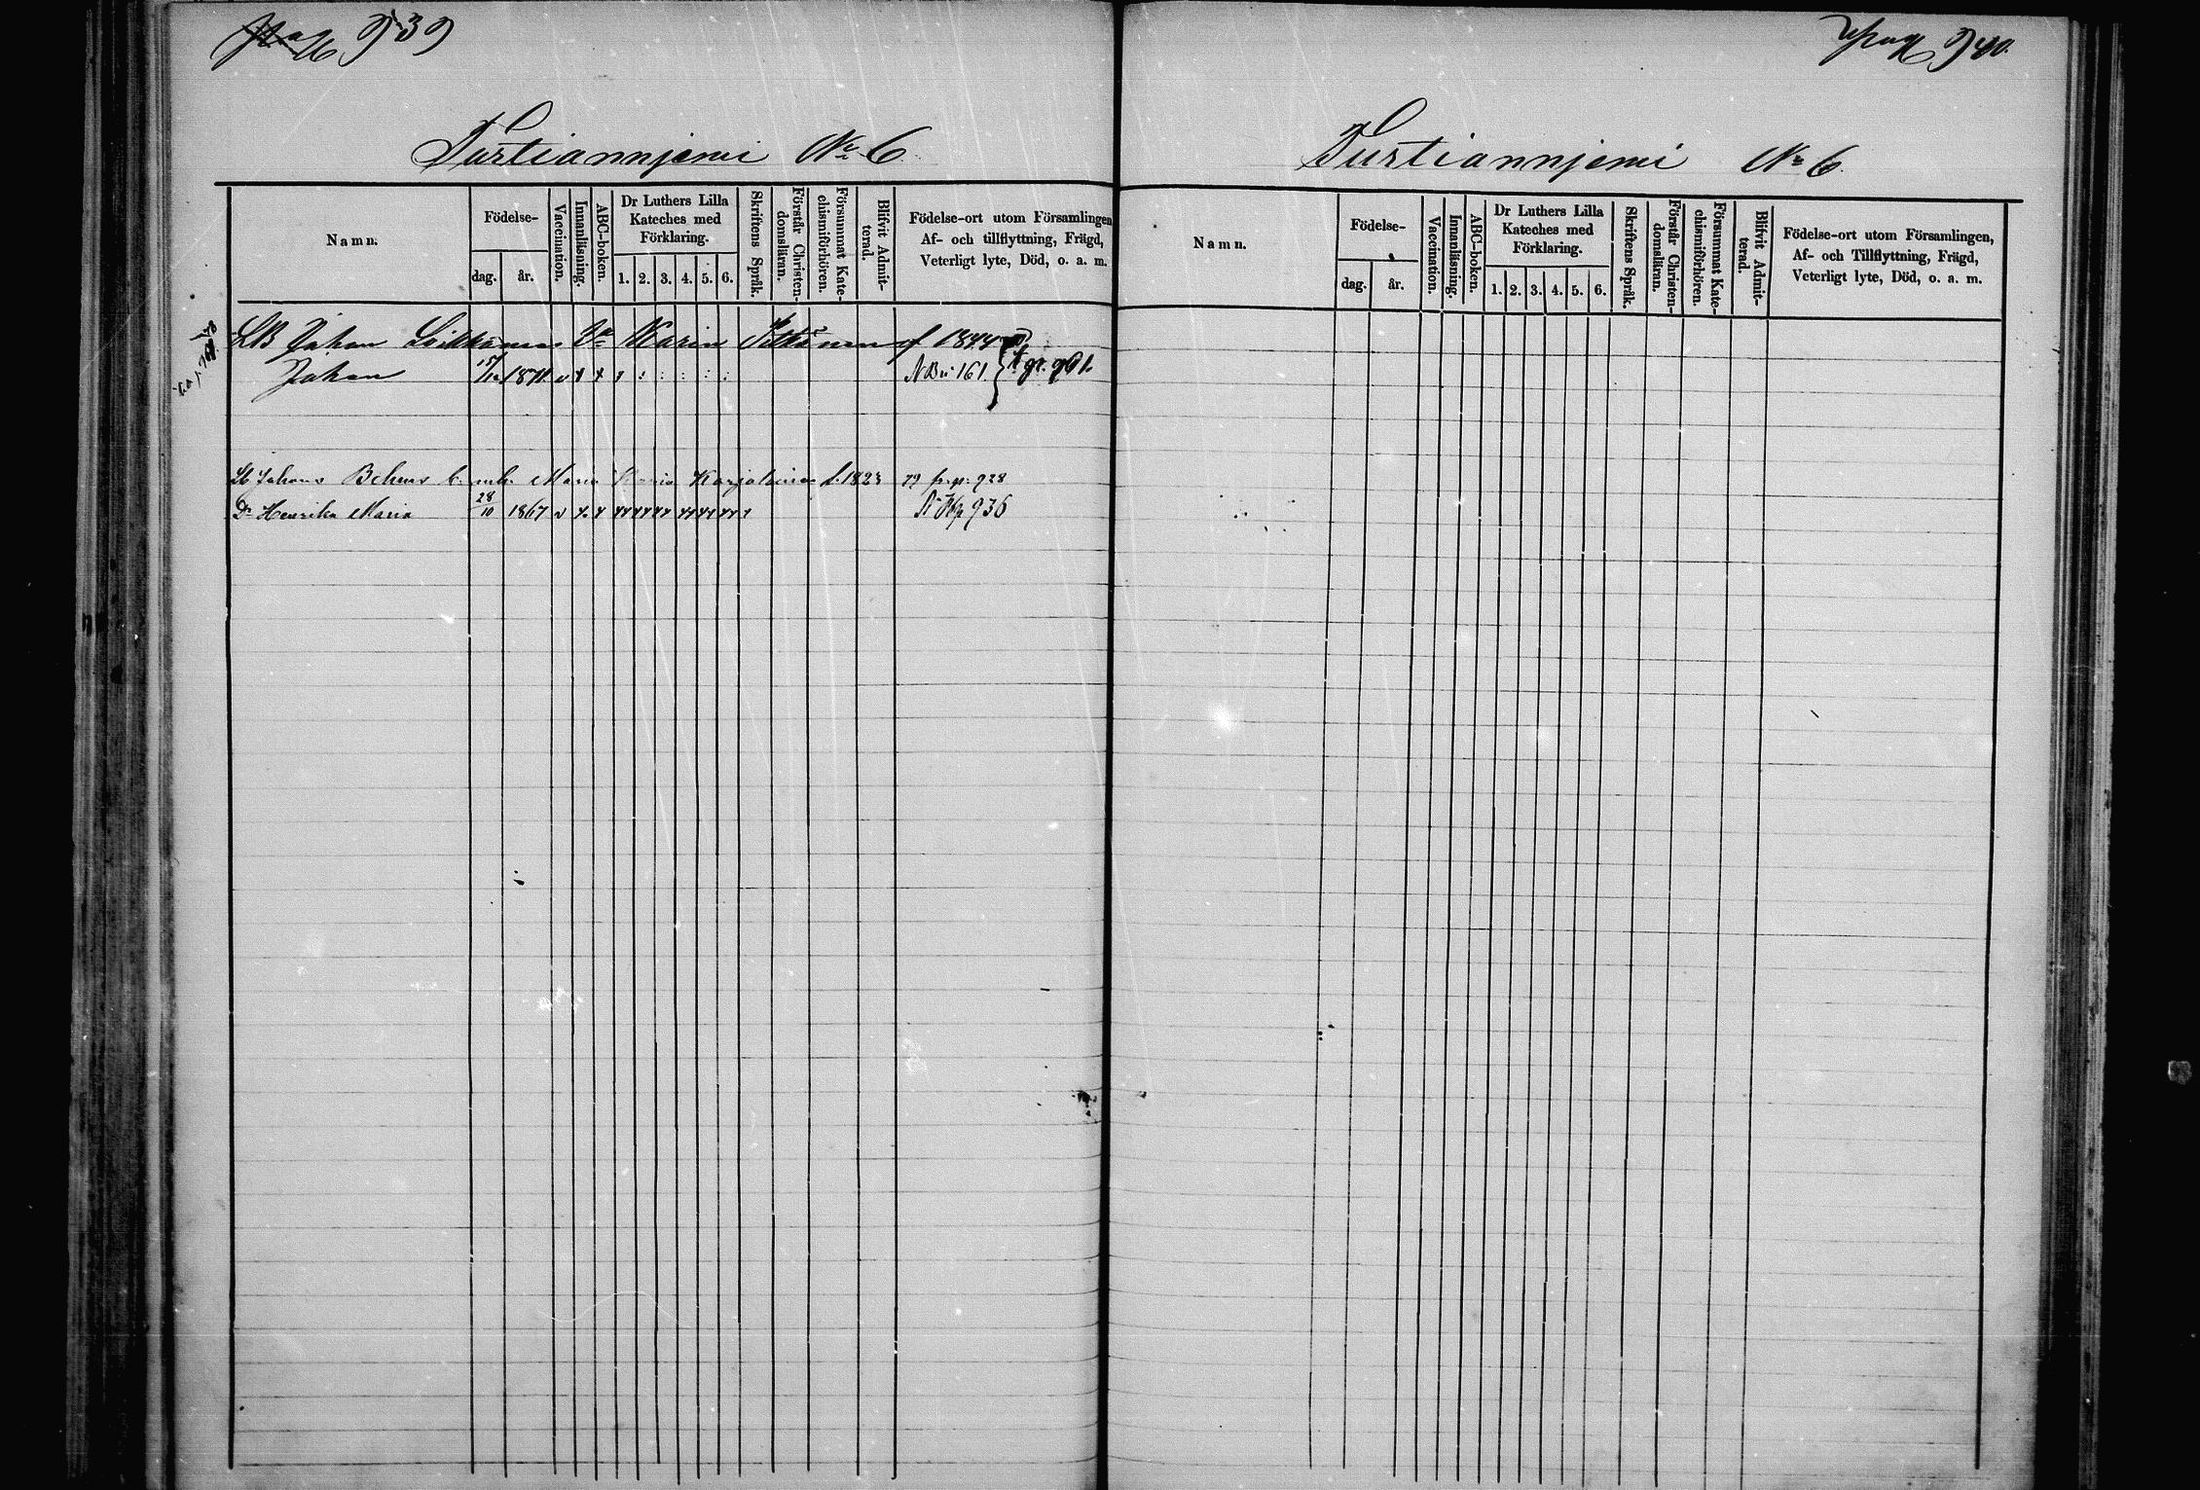 939
Surtianniemi No 6
Namn.
Födelse-
dag.
år.
Vaccination.
Innanläsning.
ABC-boken.
Dr Luthers Lilla
Kateches med
Förklaring.
1. 2. 3. 4. 5. 6.
Skriftens Språk.
Förstår Christen-
domsläran.
Försummat Kate-
chismiförhören.
Blifvit Admit-
terad.
Födelse-ort utom Församlingen
Af- och tillflyttning, Frägd,
Veterligt lyte, Död, o. a. m.
Johan Maria f 1844
Johan 15/12 1871 161
Johans Maria f. 1823 79 fr. p. 928
Dr Henrika Maria 28/10 1867 936
940.
Surtianniemi No 6
Namn.
Födelse-
dag.
år.
Vaccination.
Innanläsning.
ABC-boken.
Dr Luthers Lilla
Kateches med
Förklaring.
1. 2. 3. 4. 5. 6.
Skriftens Språk.
Förstår Christen-
domsläran.
Försummat Kate-
chismiförhören.
Blifvit Admit-
terad.
Födelse-ort utom Församlingen,
Af- och Tillflyttning, Frägd,
Veterligt lyte, Död, o. a. m.